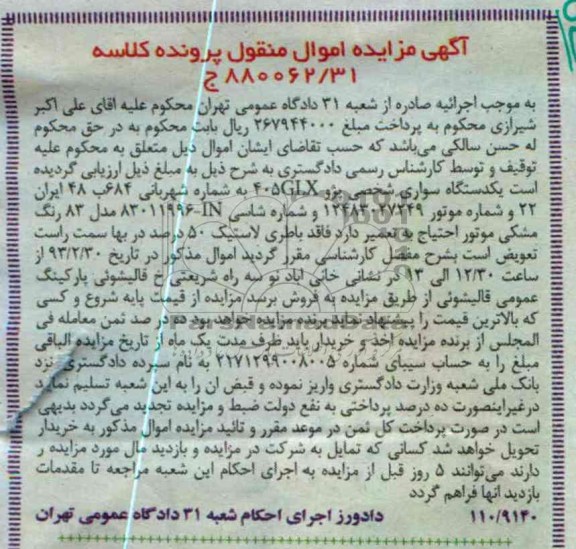 آگهی مزایده اموال منقول پرونده کلاسه
۸۸۰۰۶۲/۳۱ ج
به موجب اجرائیه صادره از شعبه ۳۱ دادگاه عمومی تهران محکوم علیه اقای علی اکبر
شیرازی محکوم به پرداخت مبلغ ۲۶۷۹۴۴۰۰۰ ریال بابت محکوم به در حق محکوم
له حسن سالکی می‌باشد که حسب تقاضای ایشان اموال ذیل متعلق به محکوم علیه
توقیف و توسط کارشناس رسمی دادگستری به شرح ذیل به مبلغ ذیل ارزیابی گردیده
است یکدستگاه سواری شخصی پژو ۴۰۵GLX به شماره شهربانی ۶۸۴ب ۴۸ ایران
۲۲ و شماره موتور ۱۲۴۸۳۰۷۷۲۴۹ و شماره شاسی IN-۸۳۰۱۱۹۹۶ مدل ۸۳ رنگ
مشکی موتور احتیاج به تعمیر دارد فاقد باطری لاستیک ۵۰ درصد در بها سمت راست
تعویض است بشرح مفصل کارشناسی مقرر گردید اموال مذکور در تاریخ ۹۳/۲/۳۰ از
ساعت ۱۲/۳۰ الی ۱۳ در نشانی خانی اباد نو سه راه شریعتی خ قالیشوئی پارکینگ
عمومی قالیشوئی از طریق مزایده به فروش برسد مزایده از قیمت پایه شروع و کسی
که بالاترین قیمت را پیشنهاد نماید برنده مزایده خواهد بود ده در صد ثمن معامله فی
المجلس از برنده مزایده اخذ و خریدار باید ظرف مدت یک ماه از تاریخ مزایده الباقی
مبلغ را به حساب سیبای شماره ۲۲۷۱۲۹۹۰۰۸۰۰۵ به نام سپرده دادگستری نزد
بانک ملی شعبه وزارت دادگستری واریز نموده و قبض ان را به این شعبه تسلیم نماید
درغیراینصورت ده درصد پرداختی به نفع دولت ضبط و مزایده تجدید می‌گردد بدیهی
است در صورت پرداخت کل ثمن در موعد مقرر و تائید مزایده اموال مذکور به خریدار
تحویل خواهد شد کسانی که تمایل به شرکت در مزایده و بازدید مال مورد مزایده ر
دارند می‌توانند ۵ روز قبل از مزایده به اجرای احکام این شعبه مراجعه تا مقدمات
بازدید آنها فراهم گردد
۱۱۰/۹۱۴۰ دادورز اجرای احکام شعبه ۳۱ دادگاه عمومی تهران